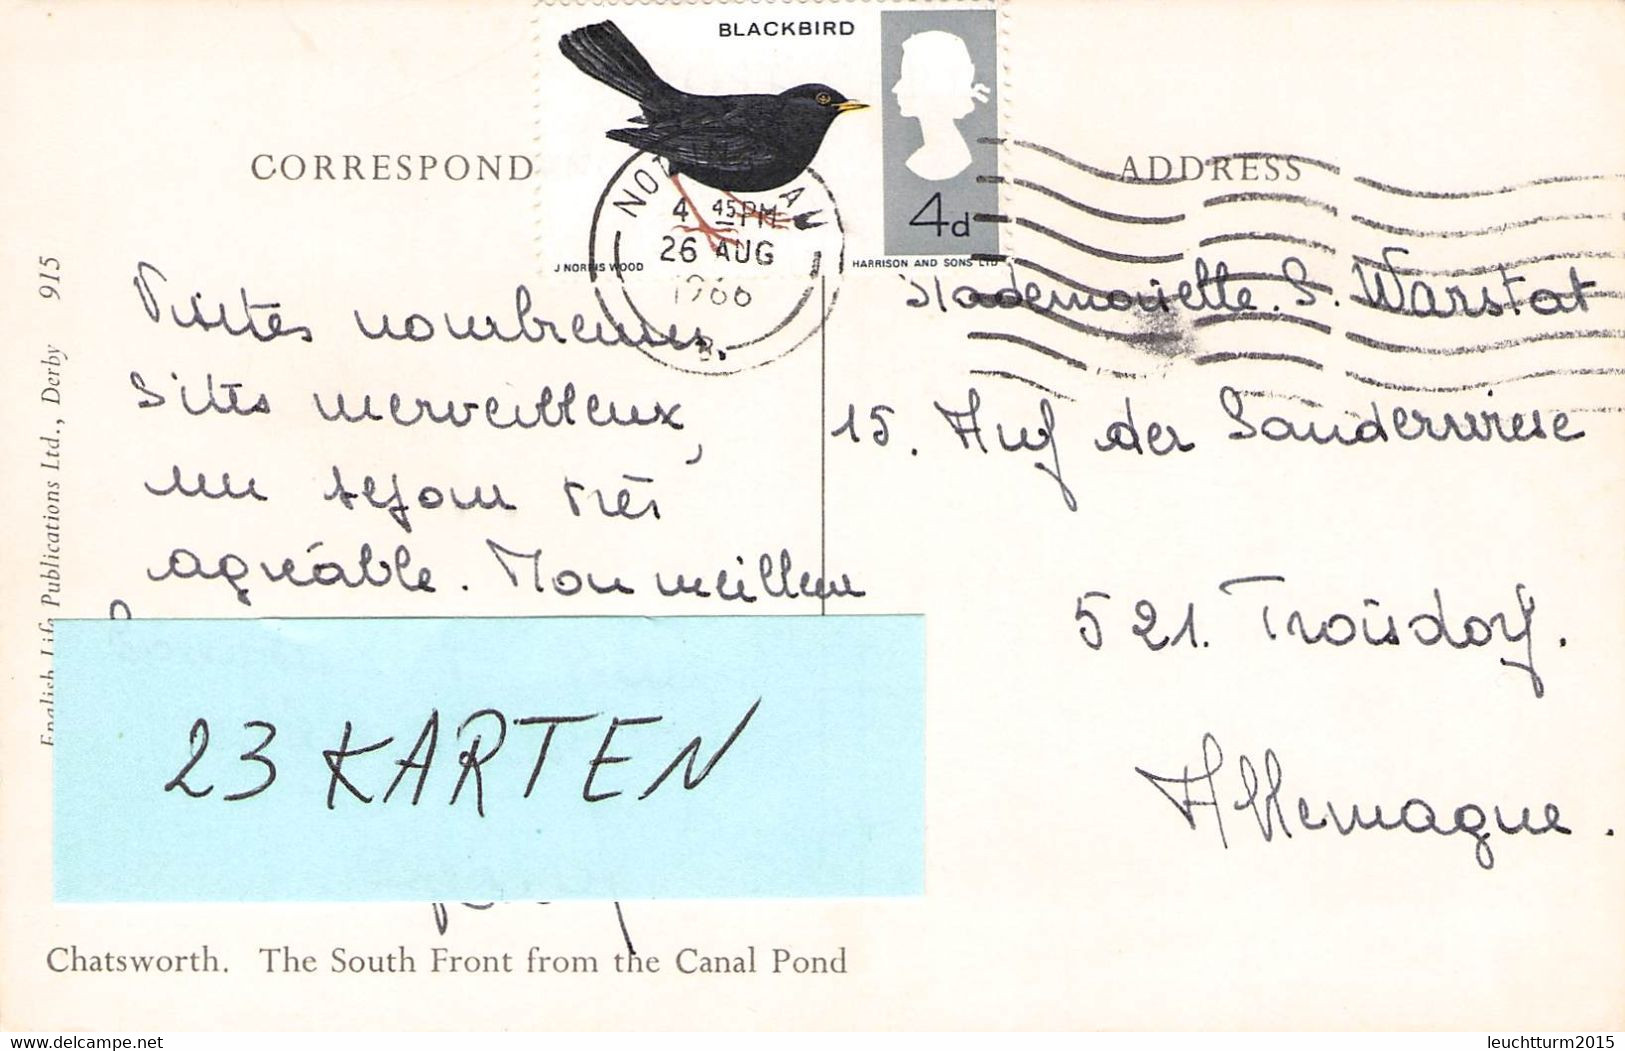 BLACKBIRD
4d
J NORRIS WOOD
HARRISON AND SONS LTD
NOTTINGHAM
4 45 PM
26 AUG
1966
B
CORRESPOND
ADDRESS
Visites nombreuses.
Sites merveilleux,
un séjour très
agréable. Mon meilleur
Mademoiselle. S. Warstat
15. Auf der Sanderwiese
521. Troisdorf.
Allemagne.
23 KARTEN
English Life Publications Ltd., Derby 915
Chatsworth. The South Front from the Canal Pond
www.delcampe.net
leuchtturm2015